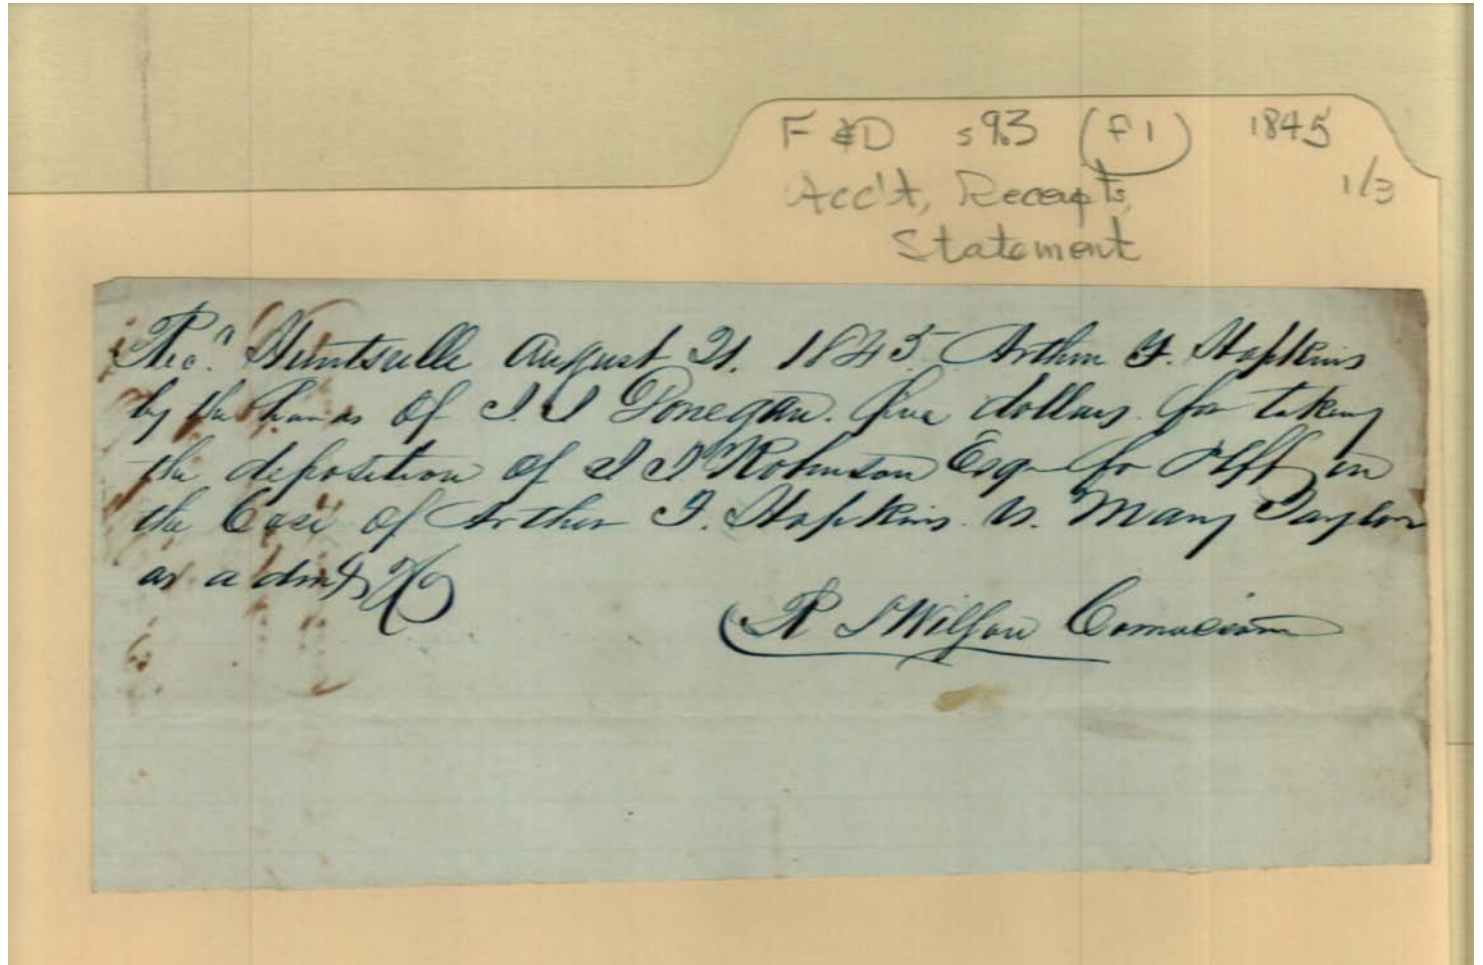 F & D s 93 (F 1) 1845
1/3
Acc't, Receipts,
Statement
Rec'd Huntsville August 21. 1845. Arthur F. Hopkins
by the hands of J. J Donegan. five dollars for taking
the deposition of J J Robinson Esq for Plff in
the Case of Arthur F. Hopkins vs. Mary Taylor
as admx &c
R S Wilson